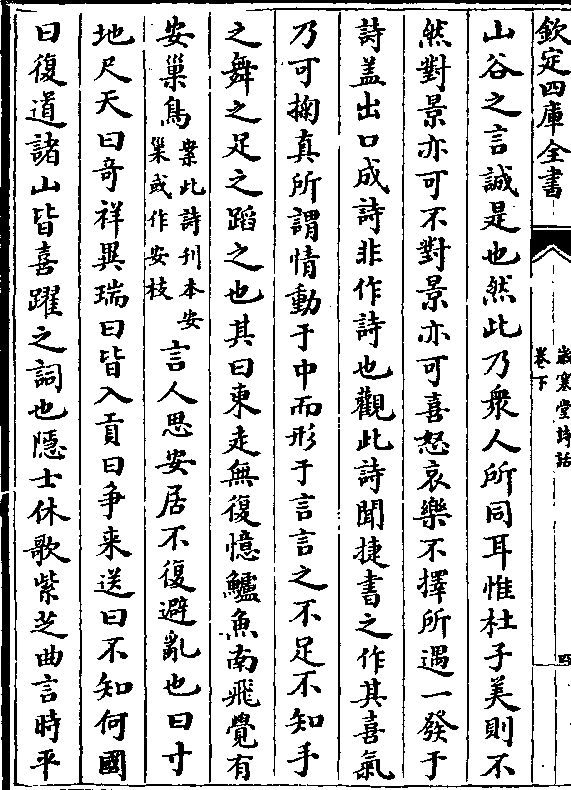 欽定四庫全書
歲寒堂詩話
卷下
四
山谷之言誠是也然此乃衆人所同耳惟杜子美則不
然對景亦可不對景亦可喜怒哀樂不擇所遇一發于
詩蓋出口成詩非作詩也觀此詩聞捷書之作其喜氣
乃可掬真所謂情動于中而形于言言之不足不知手
之舞之足之蹈之也其曰東走無復憶鱸魚南飛覺有
安巢鳥
案此詩刊本安
巢或作安枝
言人思安居不復避亂也曰寸
地尺天曰奇祥異瑞曰皆入貢曰爭来送曰不知何國
曰復道諸山皆喜躍之詞也隱士休歌紫芝曲言時平